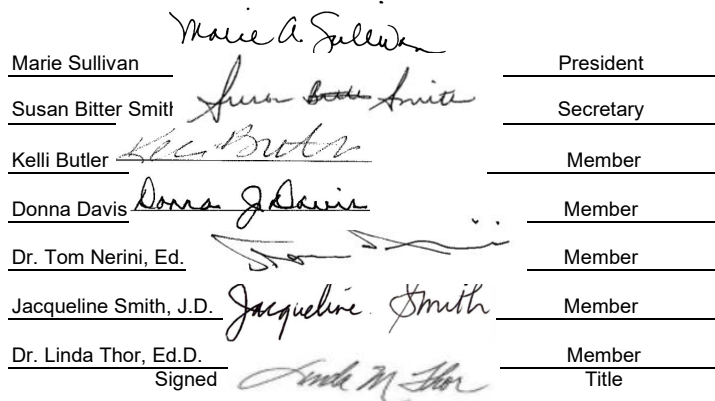 Marie A. Sullivan
Marie Sullivan President
Susan Bitter Smith Susan Bitter Smith Secretary
Kelli Butler Kelli Butler Member
Donna Davis Donna J Davis Member
Dr. Tom Nerini, Ed. Tom Nerini Member
Jacqueline Smith, J.D. Jacqueline Smith Member
Dr. Linda Thor, Ed.D. Linda M Thor Member
Signed Title